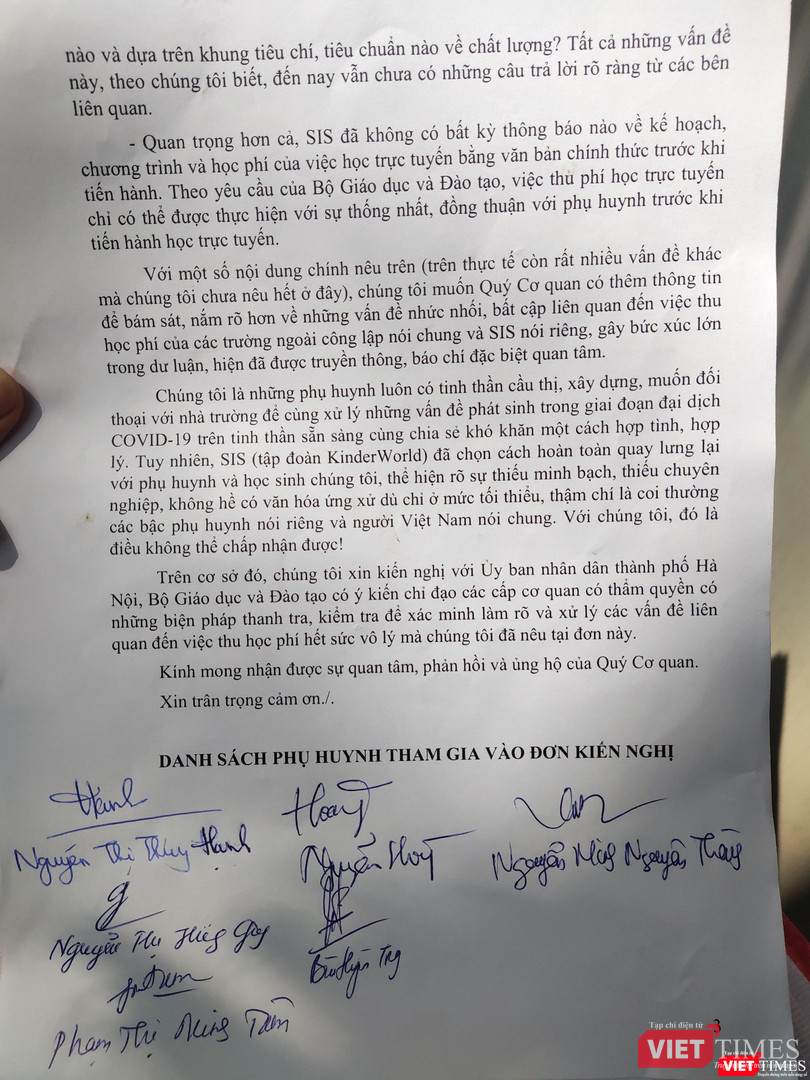 nào và dựa trên khung tiêu chí, tiêu chuẩn nào về chất lượng? Tất cả những vấn đề
này, theo chúng tôi biết, đến nay vẫn chưa có những câu trả lời rõ ràng từ các bên
liên quan.
- Quan trọng hơn cả, SIS đã không có bất kỳ thông báo nào về kế hoạch,
chương trình và học phí của việc học trực tuyến bằng văn bản chính thức trước khi
tiến hành. Theo yêu cầu của Bộ Giáo dục và Đào tạo, việc thu phí học trực tuyến
chỉ có thể được thực hiện với sự thống nhất, đồng thuận với phụ huynh trước khi
tiến hành học trực tuyến.
Với một số nội dung chính nêu trên (trên thực tế còn rất nhiều vấn đề khác
mà chúng tôi chưa nêu hết ở đây), chúng tôi muốn Quý Cơ quan có thêm thông tin
để bám sát, nắm rõ hơn về những vấn đề nhức nhối, bất cập liên quan đến việc thu
học phí của các trường ngoài công lập nói chung và SIS nói riêng, gây bức xúc lớn
trong dư luận, hiện đã được truyền thông, báo chí đặc biệt quan tâm.
Chúng tôi là những phụ huynh luôn có tinh thần cầu thị, xây dựng, muốn đối
thoại với nhà trường để cùng xử lý những vấn đề phát sinh trong giai đoạn đại dịch
COVID-19 trên tinh thần sẵn sàng cùng chia sẻ khó khăn một cách hợp tình, hợp
lý. Tuy nhiên, SIS (tập đoàn KinderWorld) đã chọn cách hoàn toàn quay lưng lại
với phụ huynh và học sinh chúng tôi, thể hiện rõ sự thiếu minh bạch, thiếu chuyên
nghiệp, không hề có văn hóa ứng xử dù chỉ ở mức tối thiểu, thậm chí là coi thường
các bậc phụ huynh nói riêng và người Việt Nam nói chung. Với chúng tôi, đó là
điều không thể chấp nhận được!
Trên cơ sở đó, chúng tôi xin kiến nghị với Ủy ban nhân dân thành phố Hà
Nội, Bộ Giáo dục và Đào tạo có ý kiến chỉ đạo các cấp cơ quan có thẩm quyền có
những biện pháp thanh tra, kiểm tra để xác minh làm rõ và xử lý các vấn đề liên
quan đến việc thu học phí hết sức vô lý mà chúng tôi đã nêu tại đơn này.
Kính mong nhận được sự quan tâm, phản hồi và ủng hộ của Quý Cơ quan.
Xin trân trọng cảm ơn./.
DANH SÁCH PHỤ HUYNH THAM GIA VÀO ĐƠN KIẾN NGHỊ
Nguyễn Thị Thuý Hạnh
Nguyễn
Nguyễn
Nguyễn Thị
Phạm Thị
3
Tạp chí điện tử
VIETTIMES
Tạp chí điện tử
VIETTIMES